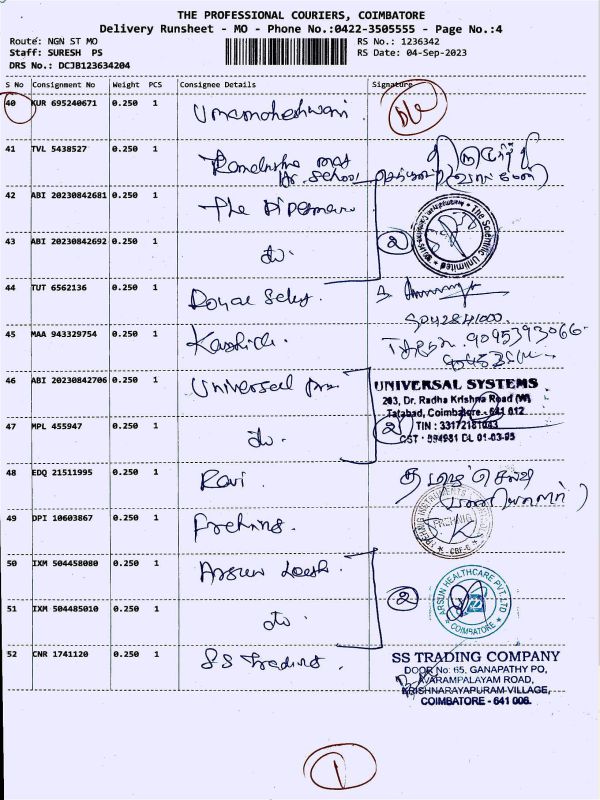 THE PROFESSIONAL COURIERS, COIMBATORE
Delivery Runsheet - MO - Phone No.:0422-3505555 - Page No.:4
Route: NGN ST MO
Staff: SURESH PS
DRS No.: DCJB123634204
RS No.: 1236342
RS Date: 04-Sep-2023
S No Consignment No Weight PCS Consignee Details Signature
40 KUR 695240671 0.250 1 Umamaheshwari
41 TVL 5438527 0.250 1
Hr. School
42 ABI 20230842681 0.250 1 The
The Scientific Unlimited
43 ABI 20230842692 0.250 1 do. 2
44 TUT 6562136 0.250 1 Royal
45 MAA 943329754 0.250 1
9095393066
46 ABI 20230842706 0.250 1 Universal
UNIVERSAL SYSTEMS
203, Dr. Radha Krishna Road (W)
Tatabad, Coimbatore - 641 012
47 MPL 455947 0.250 1 do. 2
TIN : 33172181043
CST : 594981 DL 01-03-95
48 EDQ 21511995 0.250 1 Ravi
தமிழ் செல்வி
49 DPI 10603867 0.250 1
50 IXM 504458080 0.250 1 Arsun
ARSUN HEALTHCARE PVT LTD
COIMBATORE
51 IXM 504485010 0.250 1 do. 2
52 CNR 1741120 0.250 1 SS Trading.
SS TRADING COMPANY
DOOR No: 65, GANAPATHY PO,
AVARAMPALAYAM ROAD,
KRISHNARAYAPURAM VILLAGE,
COIMBATORE - 641 006.
1